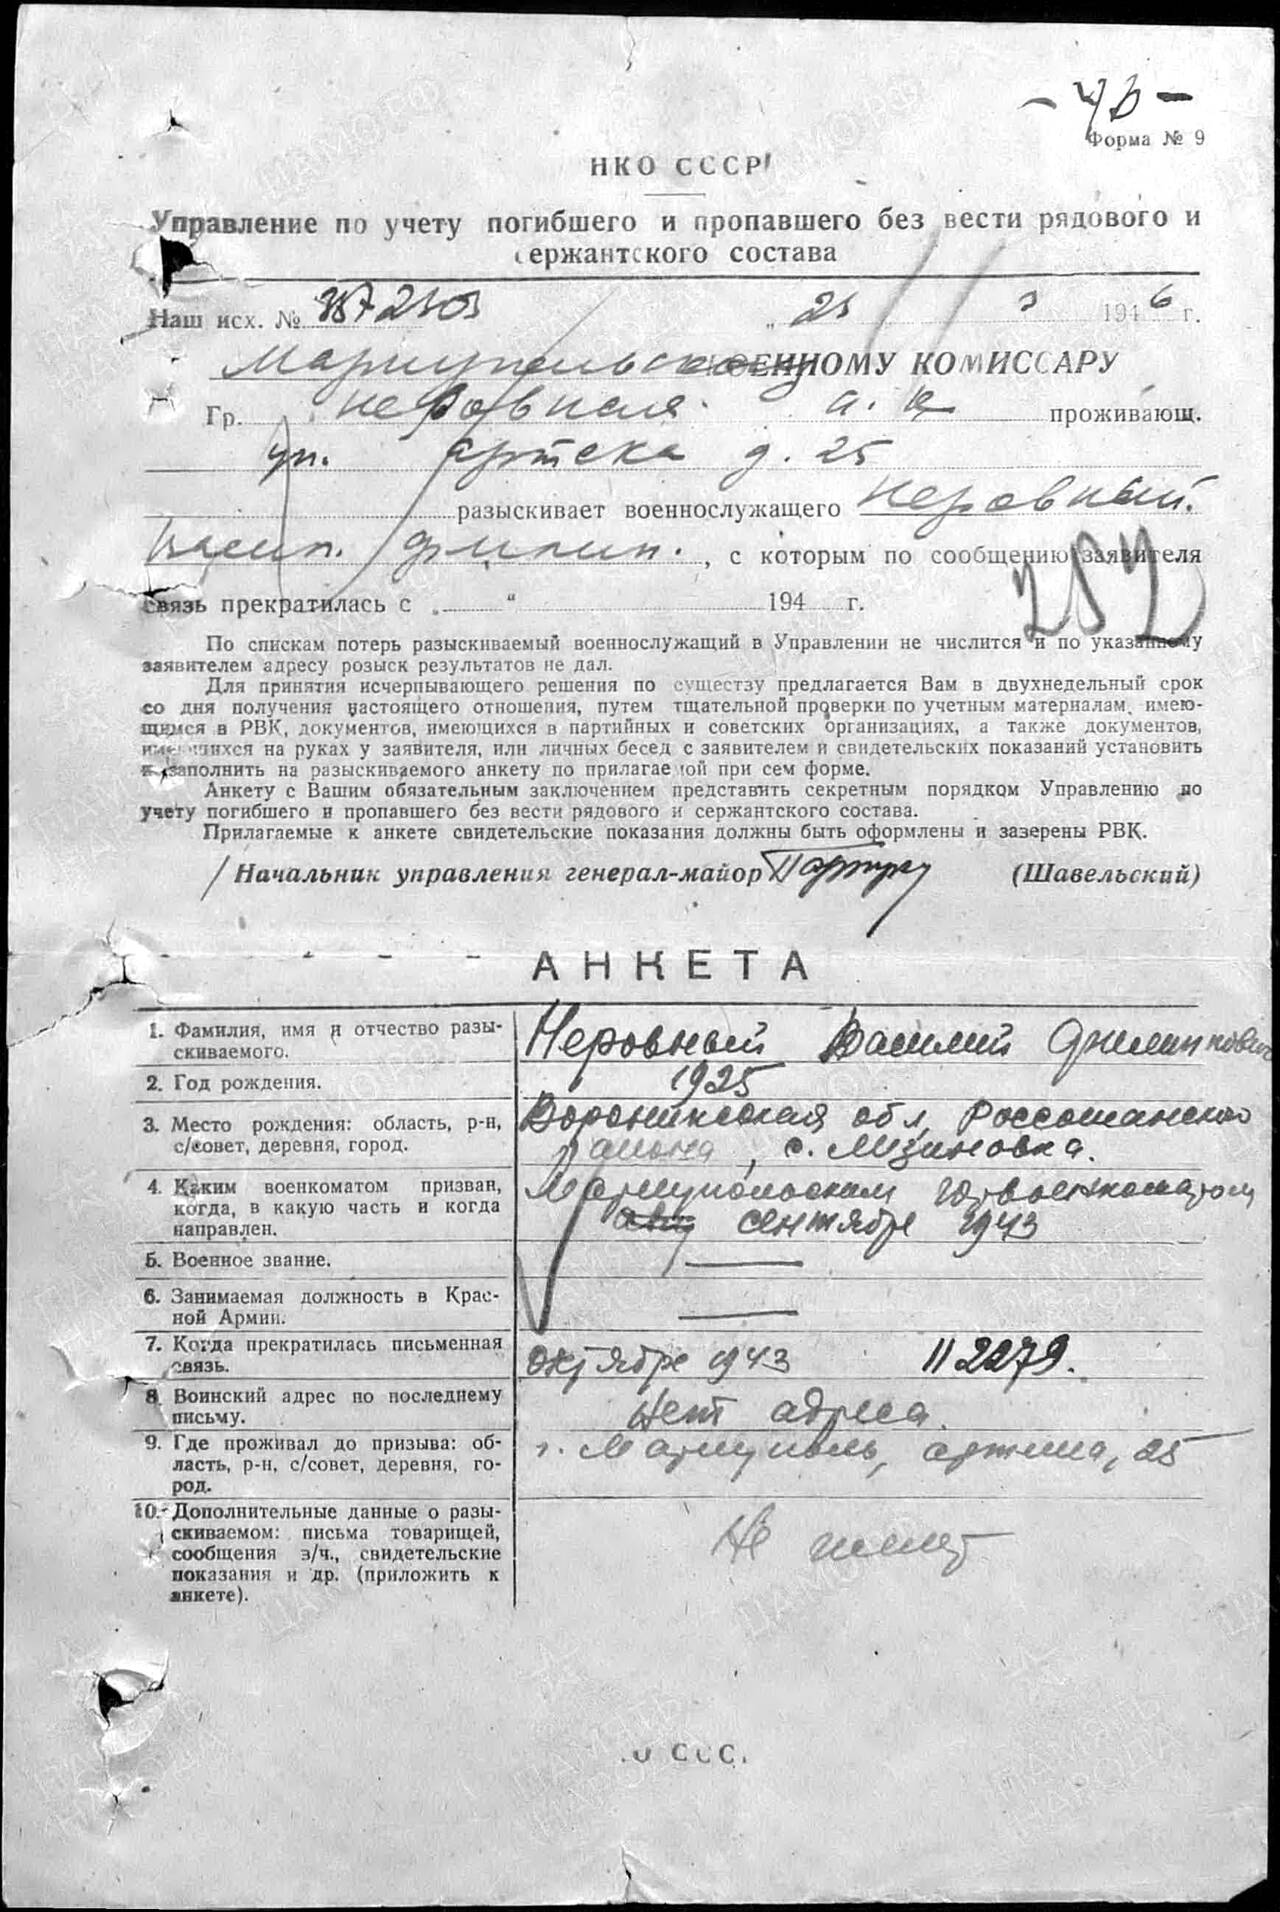 Форма № 9
НКО СССР
Управление по учету погибшего и пропавшего без вести рядового и
сержантского состава
Наш исх. №
1946 г.
Мариупольскому ВОЕННОМУ КОМИССАРУ
Гр. Неровная проживающ.
ул. д. 25
разыскивает военнослужащего Неровный
Васил. Филип., с которым по сообщению заявителя
связь прекратилась с „ " 194 г.
252
По спискам потерь разыскиваемый военнослужащий в Управлении не числится и по указанному
заявителем адресу розыск результатов не дал.
Для принятия исчерпывающего решения по существу предлагается Вам в двухнедельный срок
со дня получения настоящего отношения, путем тщательной проверки по учетным материалам, имею-
щимся в РВК, документов, имеющихся в партийных и советских организациях, а также документов,
имеющихся на руках у заявителя, или личных бесед с заявителем и свидетельских показаний установить
и заполнить на разыскиваемого анкету по прилагаемой при сем форме.
Анкету с Вашим обязательным заключением представить секретным порядком Управлению по
учету погибшего и пропавшего без вести рядового и сержантского состава.
Прилагаемые к анкете свидетельские показания должны быть оформлены и заверены РВК.
Начальник управления генерал-майор (Шавельский)
АНКЕТА
1. Фамилия, имя и отчество разы-
скиваемого.
Неровный Василий Филиппович
2. Год рождения.
1925
3. Место рождения: область, р-н,
с/совет, деревня, город.
Воронижская обл, Россошанского
района, с. Лизиновка.
4. Каким военкоматом призван,
когда, в какую часть и когда
направлен.
Мариупольским горвоенкоматом
сентябре 1943
5. Военное звание.
6. Занимаемая должность в Крас-
ной Армии.
7. Когда прекратилась письменная
связь.
октябре 1943 112279.
8. Воинский адрес по последнему
письму.
Нет адреса.
9. Где проживал до призыва: об-
ласть, р-н, с/совет, деревня, го-
род.
г. Мариуполь, 25
10. Дополнительные данные о разы-
скиваемом: письма товарищей,
сообщения в/ч., свидетельские
показания и др. (приложить к
анкете).
Не